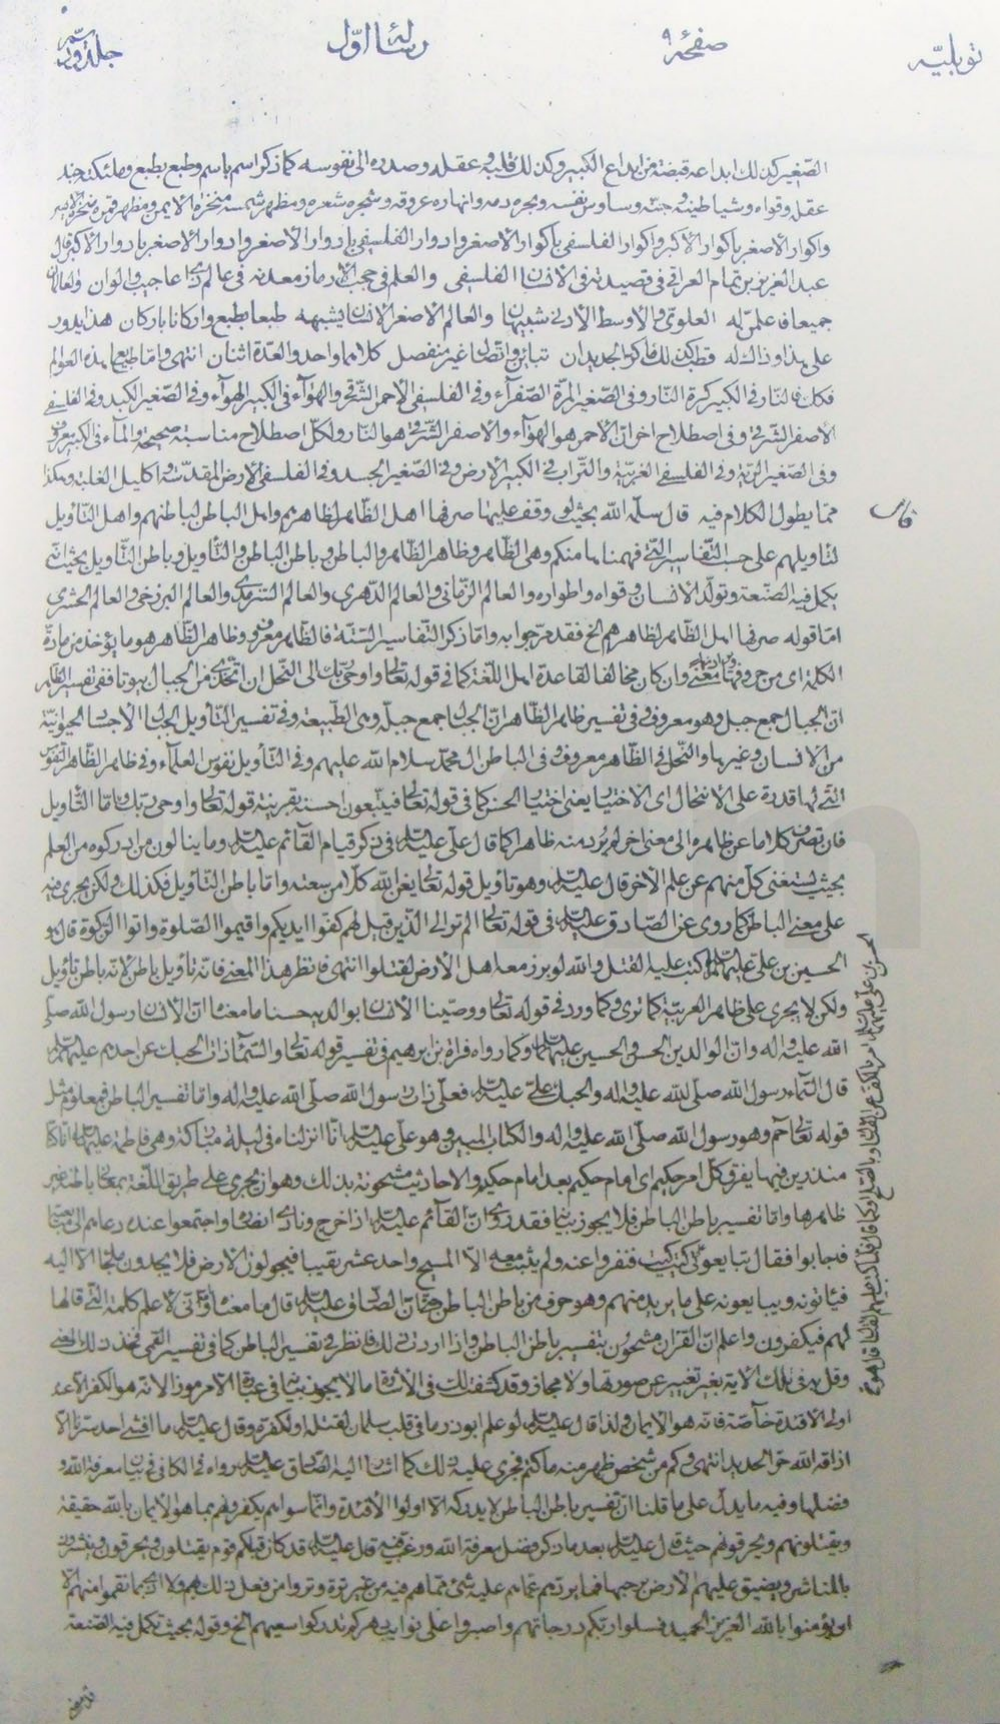 توبلیه صفحه ۹ رسالة اوّل جلد
الصّغير كذلك ابداعه قبضته من ابداع الكبير وكذلك قلبه وعقله وصدره الى نفوسه كما ذكر اسم باسم وطبع بطبع وملئكته جند
عقله وقواه وشياطينه وجنّه وساوس نفسه وبحره دمه وانهاره عروقه وشجره شعره ومظهر شمسه منخره الايمن ومظهر قمره منخره الايسر
واكوار الاصغر باكوار الاكبر واكوار الفلسفى باكوار الاصغر وادوار الفلسفى بادوار الاصغر وادوار الاصغر بادوار الاكبر قال
عبد العزيز بن تمام العراقى فى قصيدته فى الانسان الفلسفى والعلم فى حجب الارماز معدنه فى عالم ذى اعاجيب والوان والعالمان
جميعا فاعلمن له العلوى والاوسط الأدنى شبيهان والعالم الاصغر الانسان يشبهه طبعا بطبع واركانا باركان هذا يدور
على هذا وذاك له قطب كذلك ما كرّ الجديدان تباين واتصال غير منفصل كلاهما واحد والعدّة اثنان انتهى وامّا طبايع هذه العوالم
فكان النّار فى الكبير كرة النّار وفى الصّغير المرّة الصّفراء وفى الفلسفى الاحمر الشّرقى والهوآء فى الكبير الهوآء وفى الصّغير الكبد وفى الفلسفى
الاصفر الشّرقى وفى اصطلاح اخر انّ الاحمر هو الهوآء والاصفر الشّرقى هو النّار ولكلّ اصطلاح مناسبة صحيحة والمآء فى الكبير معروف
وفى الصّغير الرّية وفى الفلسفى الغربيّة والتّراب فى الكبير الارض وفى الصّغير الجسد وفى الفلسفى الارض المقدّسة واكليل الغلبة وهكذا
ممّا يطول الكلام فيه قال سلّمه الله بحيث لو وقف عليها صرفها اهل الظّاهر لظاهرهم واهل الباطن لباطنهم واهل التّأويل
لتأويلهم على حسب التّفاسير الّتى فهمناها منكم وهى الظّاهر وظاهر الظّاهر والباطن وباطن الباطن والتّأويل وباطن التّأويل بحيث انّه
يكمل فيه الصّنعة وتولّد الانسان وقواه واطواره والعالم الزّمانى والعالم الدّهرى والعالم السّرمدى والعالم البرزخى والعالم الحشرى
امّا قوله صرفها اهل الظّاهر لظاهرهم الخ فقد مرّ جوابه وامّا ذكر التّفاسير السّتّة فالظّاهر معروف وظاهر الظّاهر هو ما يؤخذ من مادّة
الكلمة اى من حروفها معنى وان كان مخالفا لقاعدة اهل اللّغة كما فى قوله تعالى واوحى ربّك الى النّحل ان اتّخذى من الجبال بيوتا ففى تفسير الظّاهر
انّ الجبال جمع جبل وهو معروف وفى تفسير ظاهر الظّاهر انّ الجبال جمع جبلّة وهى الطّبيعة وفى تفسير التّأويل الجبال الاجسام الحيوانيّة
من الانسان وغيرها والنّحل فى الظّاهر معروف وفى الباطن ال محمّد سلام الله عليهم وفى التّأويل نفوس العلمآء وفى ظاهر الظّاهر النّفوس
الّتى لها قدرة على الانتحال اى الاختيار يعنى اختيار الحسن كما فى قوله تعالى فيتّبعون احسنه بقرينة قوله تعالى واوحى ربّك وامّا التّأويل
فان تصرف كلاما عن ظاهره الى معنى اخر لم يرد منه ظاهرا كما قال علىّ عليه السّلام فى ذكر قيام القآئم عليه السّلام وما ينالون من ادركوه من العلم
بحيث يستغنى كلّ منهم عن علم الاخر قال عليه السّلام وهو تأويل قوله تعالى يغن الله كلّا من سعته وامّا باطن التّأويل فكذلك ولكن يجرى فيه
على معنى الباطن كما روى عن الصّادق عليه السّلام فى قوله تعالى الم تر الى الّذين قيل لهم كفّوا ايديكم واقيموا الصّلوة واتوا الزّكوة قال هو
الحسين بن علىّ عليهما السّلام كتب عليه القتل والله لو برز معه اهل الأرض لقتلوا انتهى فانظر هذا المعنى فانّه تأويل باطن لانّه باطن تأويل
ولكن لا يجرى على ظاهر العربيّة كما ترى وكما ورد فى قوله تعالى ووصّينا الانسان بوالديه حسنا ما معناه انّ الانسان رسول الله صلّى
الله عليه واله وانّ الوالدين الحسن والحسين عليهما السّلام وكما رواه فرات بن ابرهيم فى تفسير قوله تعالى والسّمآء ذات الحبك عن احدهم عليهم السّلام
قال السّمآء رسول الله صلّى الله عليه واله والحبك علىّ عليه السّلام فعلىّ ذات رسول الله صلّى الله عليه واله وامّا تفسير الباطن فمعلوم مثل
قوله تعالى حم وهو رسول الله صلّى الله عليه واله والكتاب المبين وهو علىّ عليه السّلام انّا انزلناه فى ليلة مباركة وهى فاطمة عليها السّلام انّا كنّا
منذرين فيها يفرق كلّ امر حكيم اى امام حكيم بعد امام حكيم والاحاديث مشحونة بذلك وهو ان يجرى على طريق اللّغة بمعنى باطنه غير
ظاهرها وامّا تفسير باطن الباطن فلا يجوز بيانه فقد روى انّ القآئم عليه السّلام اذا خرج ونادى انصاره واجتمعوا عنده دعاهم الى مبايعته
فجابوا فقال تبايعونى كيت كيت فنفروا عنه ولم يثبت معه الّا المسيح واحد عشر نقيبا فيجولون الارض فلا يجدون ملجأ الّا اليه
فيأتونه ويبايعونه على ما يريد منهم وهو حرف من باطن الباطن حتّى انّ الصّادق عليه السّلام قال ما معناه وانّى لاعلم كلمة الّتى قالها
لهم فيكفرون واعلم انّ القران مشحون بتفسير باطن الباطن واذا اردت ذلك فانظر فى تفسير الباطن كما فى تفسير القمى فخذ ذلك المعنى
وقل به فى تلك الاية بغير تغيير عن صورتها ولا مجاز وقد كشفت لك فى الاشارة ما لا يجوز بيانه فى عبارة الا مرموز الانّه هو الكفر الا عند
اولى الافئدة خآصّة فانّه هو الايمان ولذا قال عليه السّلام لو علم ابوذر ما فى قلب سلمان لقتله او لكفره وقال عليه السّلام ما افشى احد سرّنا الّا
اذاقه الله حرّ الحديد انتهى وكم من شخص ظهر منه ما كتم فجرى عليه ذلك كما اشار اليه الصّادق عليه السّلام رواه فى الكافى فى بيان معرفة الله و
فضلها وفيه ما يدلّ على ما قلنا انّ تفسير باطن الباطن لا يدركه الّا اولوا الأفئدة وامّا سواهم يكفرونهم بما هو الايمان بالله حقيقة
ويقتلونهم ويحرقونهم حيث قال عليه السّلام بعد ما ذكر فضل معرفة الله ورغّب فيه قال عليه السّلام قد كان قبلكم قوم يقتلون ويحرقون وينشرون
بالمناشير ويضيق عليهم الارض برحبها فما يردّهم عمّا هم عليه شئ ممّا هم فيه من غير ترة وتروا من فعل ذلك بهم ولا اذى بما نقموا منهم الّا
ان يؤمنوا بالله العزيز الحميد فسلوا ربّكم درجاتهم واصبروا على نوائب دهركم تدركوا سعيهم الخ وقوله بحيث تكمل فيه الصّنعة